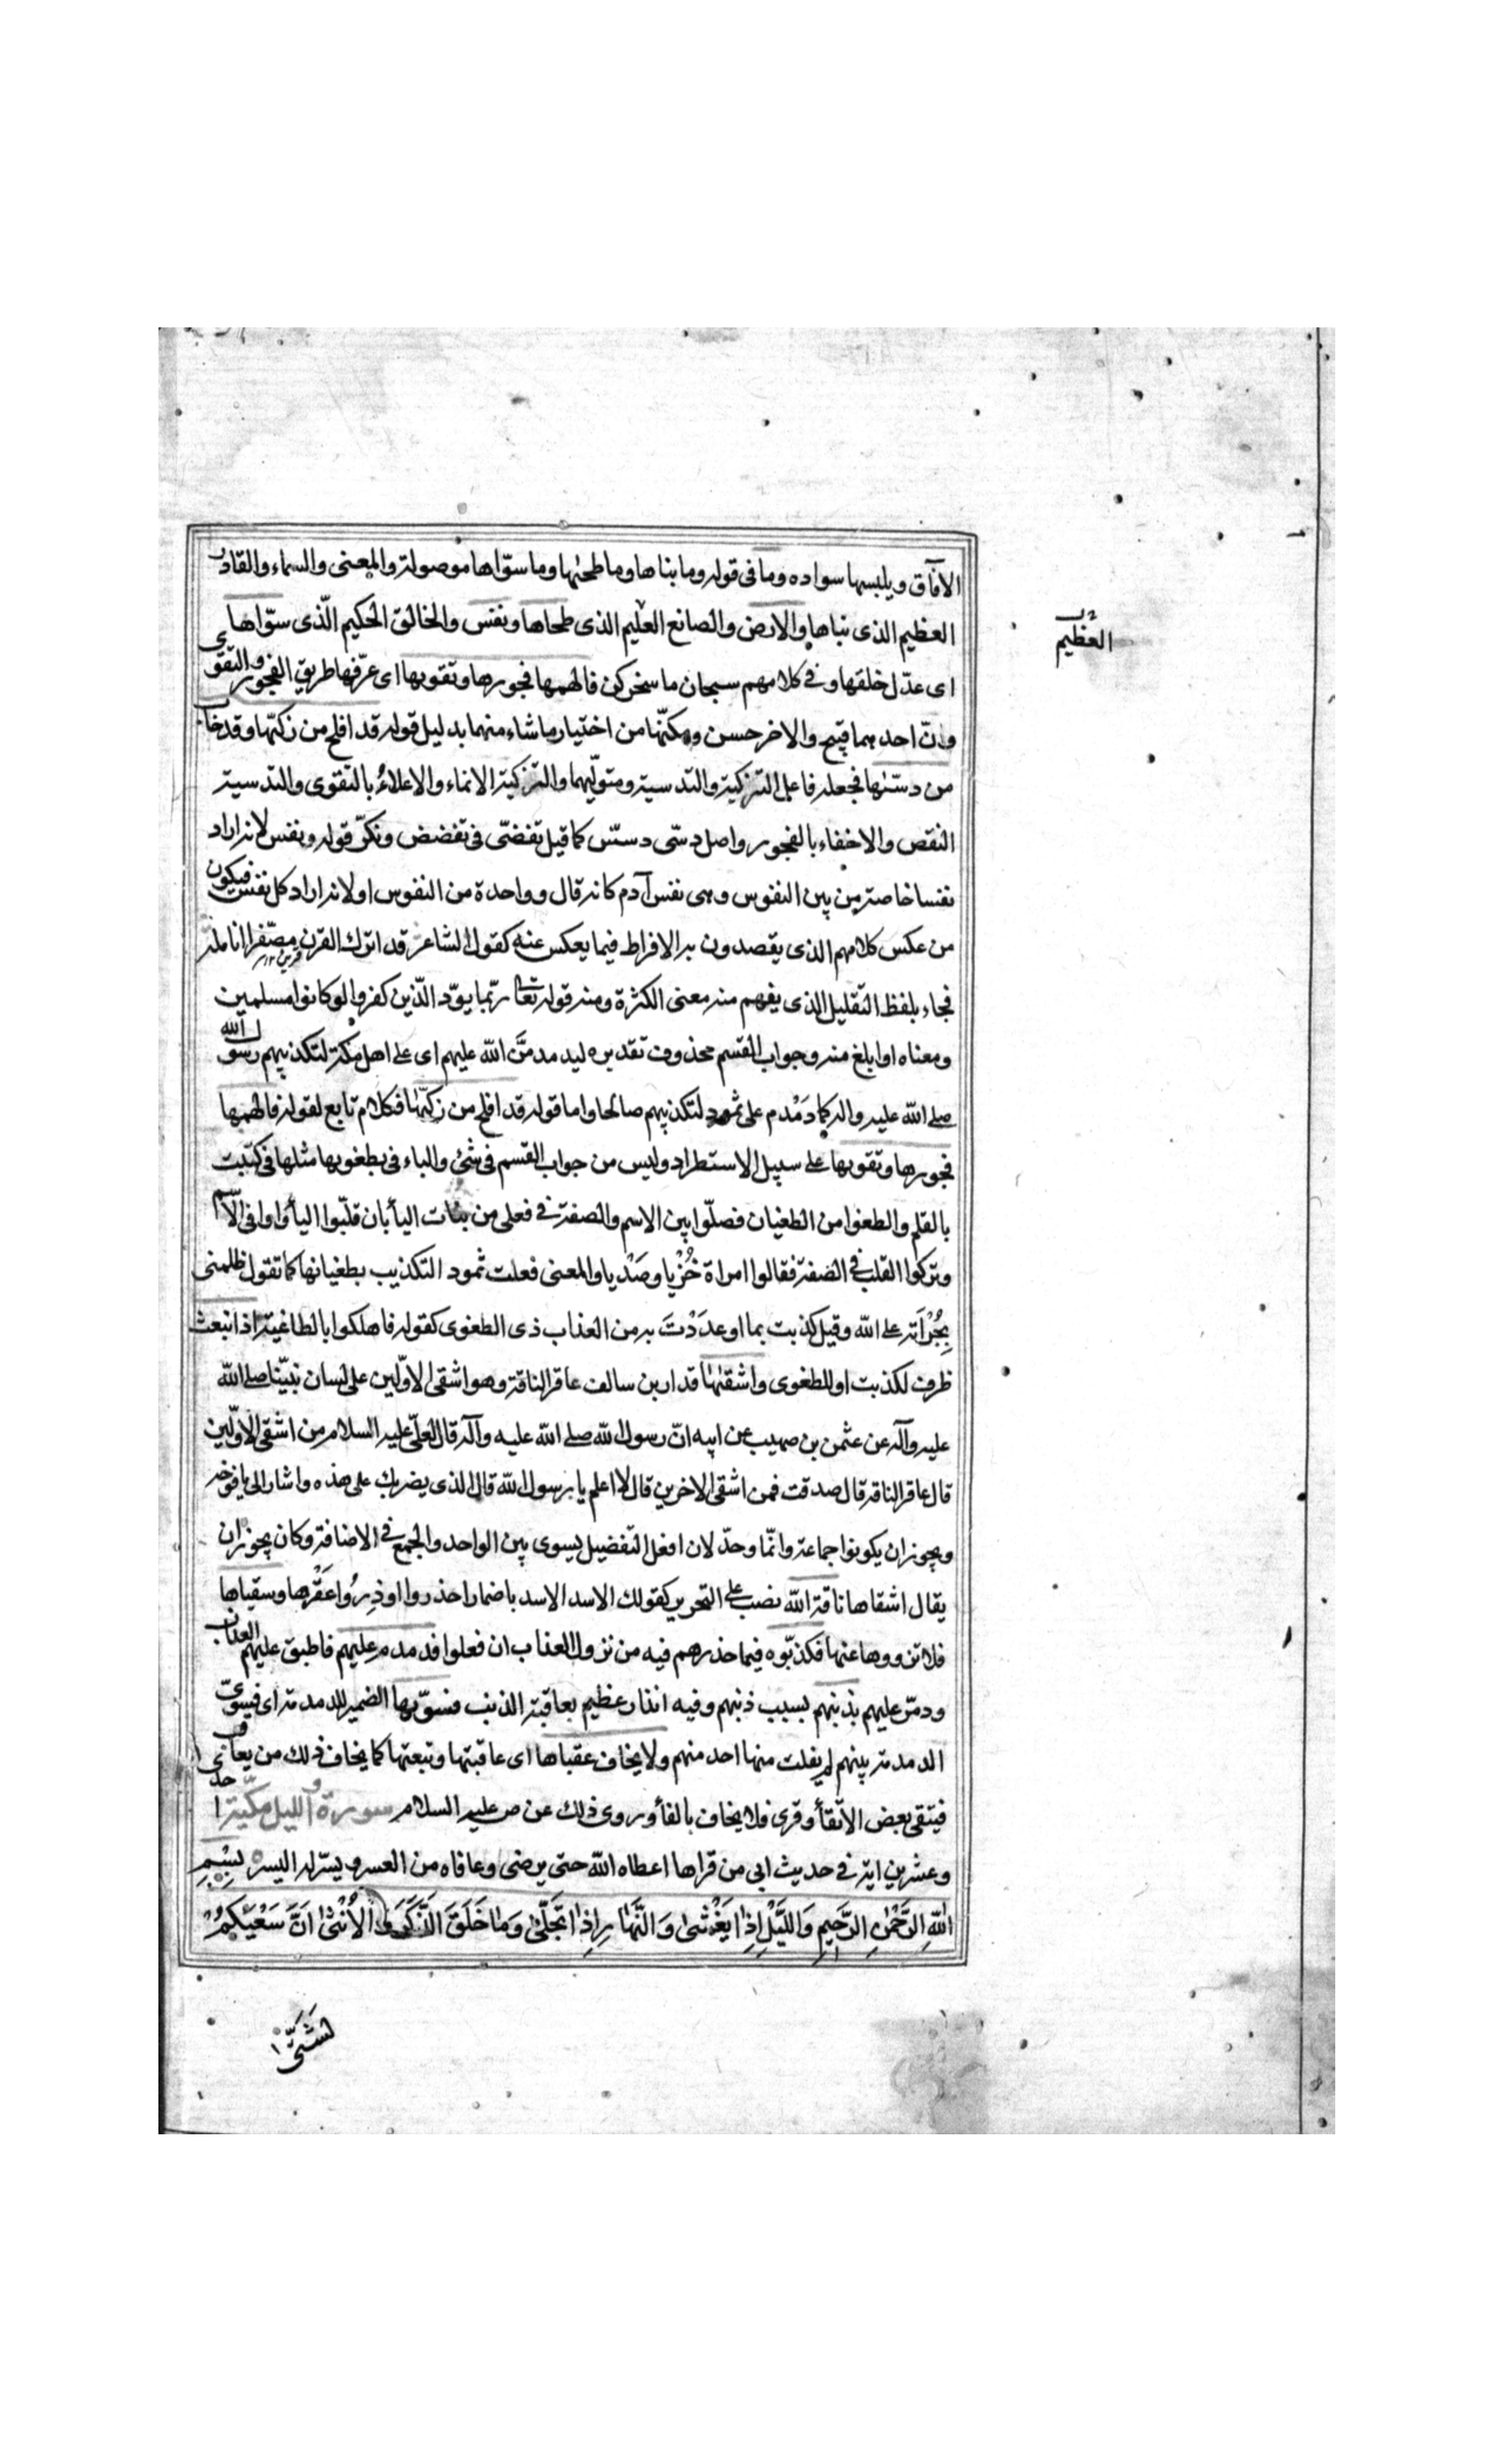 الآفاق ويلبسها سواده وما فى قوله وما بناها وما طحيٰها وما سوّاها موصولة والمعنى والسماء والقادر
العظيم الذى بناها والارض والصانع العليم الذى طحاها ونفس والخالق الحكيم الّذى سوّاها
العظيم
اى عدّل خلقها وفى كلامهم سبحان ما سخركن فالهمها فجورها وتقويها اى عرّفها طريق الفجور والتقوى
وانّ احدهما قبيح والاخر حسن ومكنّها من اختيار ما شاء منهما بدليل قوله قد افلح من زكّيها وقد خاب
من دسّيٰها فجعله فاعل التزكية والتدسية ومتوليهما والتزكية الانماء والاعلاء بالتقوى والتدسية
النقص والاخفاء بالفجور واصل دسّى دسّس كما قيل تقضّى فى تقضض ونكّر قوله ونفس لانه اراد
نفسا خاصة من بين النفوس وهى نفس آدم كانه قال وواحدة من النفوس او لانه اراد كل نفس فيكون
من عكس كلامهم الذى يقصدون به الافراط فيما يعكس عنه كقول الشاعر قد اترك القرن مصفّرا انامله
فجاء بلفظ التقليل الذى يفهم منه معنى الكثرة ومنه قوله تعا ربّما يودّ الّذين كفروا لو كانوا مسلمين
ومعناه او ابلغ منه وجواب القسم محذوف تقديره ليدمدمنّ الله عليهم اى على اهل مكة لتكذيبهم رسول الله
صلى الله عليه واله كما دَمْدم على ثمود لتكذيبهم صالحا واما قوله قد افلح من زكّيٰها فكلام تابع لقوله فالهمها
فجورها وتقويها على سبيل الاستطراد وليس من جواب القسم فى شئ والباء فى بطغويها مثلها فى كتبت
بالقلم والطغوا من الطغيان فصلّوا بين الاسم والصفة فى فعلى من بنات اليأ بان قلّبوا اليأ واوا فى الاسم
وتركوا القلب فى الصفة فقالوا امراة خُزْيا وصَدْيا والمعنى فعلت ثمود التكذيب بطغيانها كما تقول ظلمنى
بجُرْاَته على الله وقيل كذبت بما اوعدَدْتَ به من العذاب ذى الطغوى كقوله فاهلكوا بالطاغية اذ انبعث
ظرف لكذبت او للطغوى واشقيٰها قدار بن سالف عاقر الناقة وهو اشقى الاوّلين على لسان نبيّنا صلى الله
عليه وآله عن عثمن بن صهيب عن ابيه انّ رسول الله صلى الله عليه وآله قال لعلىّ عليه السلام من اشقى الاوّلين
قال عاقر الناقة قال صدقت فمن اشقى الاخرين قال لا اعلم يا رسول الله قال الذى يضربك على هذه واشار الى يافوخه
ويجوز ان يكونوا جماعة وانّما وحدّ لان افعل التفضيل يسوى بين الواحد والجمع فى الاضافة وكان يجوز ان
يقال اشقاها ناقة الله نصب على التحرير كقولك الاسد الاسد باضمار احذروا او ذِرُوا عَقْرها وسقياها
فلا تزووها عنها فكذبّوه فيما حذرهم فيه من نزول العذاب ان فعلوا فدمدم عليهم فاطبق عليهم العذاب
ودمّر عليهم بذنبهم بسبب ذنبهم وفيه انذار عظيم بعاقبة الذنب فسوّيها الضمير للدمدمة اى فسوّى
الدمدمة بينهم لم يفلت منها احد منهم ولا يخاف عقباها اى عاقبتها وتبعتها كما يخاف ذلك من يعاقب
فيتقى بعض الاتقأ وقرئ فلا يخاف بالفأ وروى ذلك عن ص عليه السلام سورة الليل مكّية احد
وعشرين اية فى حديث ابى من قراها اعطاه الله حتى يرضى وعافاه من العسر ويسّر له اليسر بِسْمِ
اللّٰهِ الرَّحْمٰنِ الرَّحِيمِ وَاللَّيْلِ اِذٰا يَغْشىٰ وَالنَّهٰارِ اِذٰا تَجَلّىٰ وَمٰا خَلَقَ الذَّكَرَ وَالْاُنْثىٰ اِنَّ سَعْيَكُمْ
لَشَتّىٰ